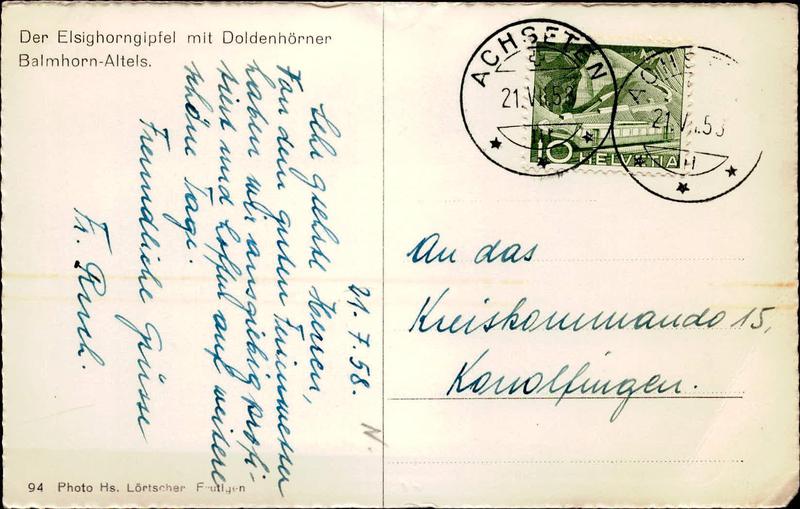 Der Elsighorngipfel mit Doldenhörner
Balmhorn-Altels.
21.7.58.
Sehr geehrte Herren,
Von dem guten Ferienwetter
haben wir ausgiebig profi-
tiert und hoffen auf weitere
schöne Tage.
Freundliche Grüsse
Fr.
N.
94 Photo Hs. Lörtscher Frutigen
ACHSETEN
21.VII.58
10 HELVETIA
21.VII.58
An das
Kreiskommando 15,
Konolfingen.